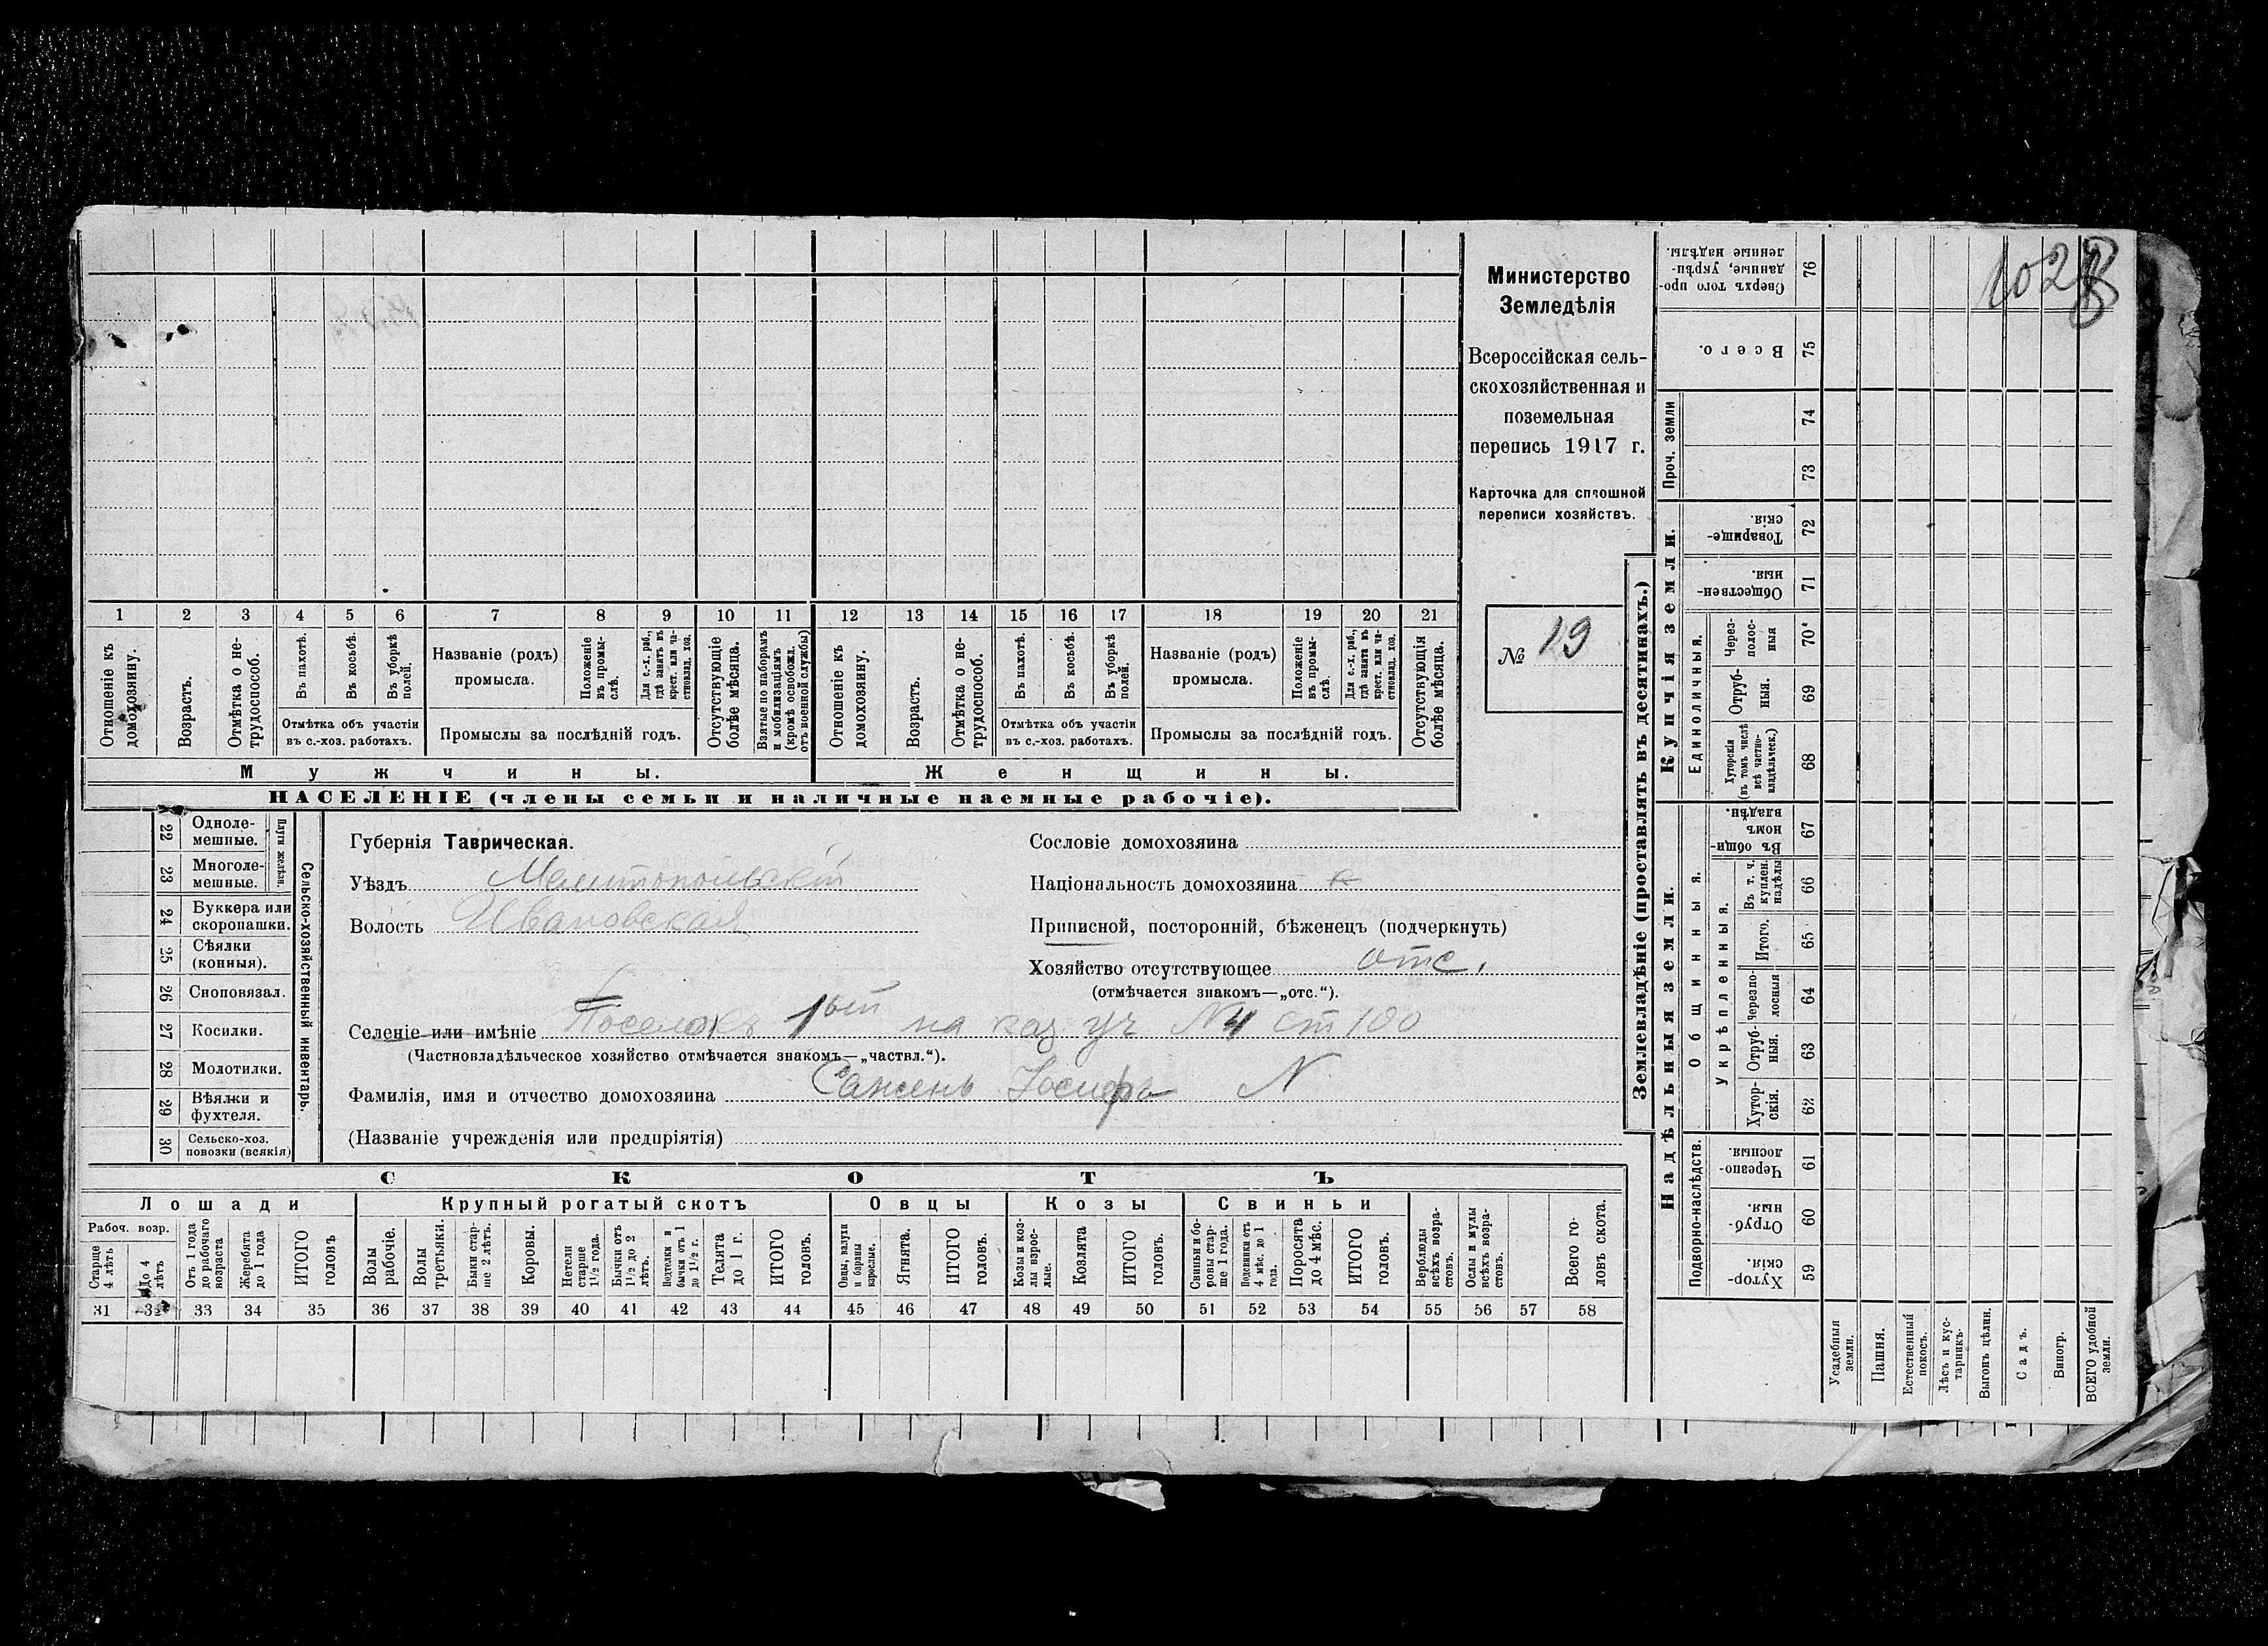 1028
Министерство
Земледѣлія
Всероссійская сель-
скохозяйственная и
поземельная
перепись 1917 г.
Карточка для сплошной
переписи хозяйствъ.
№ 19
1 2 3 4 5 6 7 8 9 10 11 12 13 14 15 16 17 18 19 20 21
Отношеніе къ домохозяину.
Возрастъ.
Отмѣтка о не-трудоспособ.
Въ пахотѣ.
Въ косьбѣ.
Въ уборкѣ полей.
Отмѣтка объ участіи
въ с.-хоз. работахъ.
Названіе (родъ)
промысла.
Положеніе въ промы-слѣ.
Для с.-х. раб., гдѣ занятъ въ крест. или ча-стновлад. хоз.
Промыслы за послѣдній годъ.
Отсутствующіе болѣе мѣсяца.
Взятые по наборамъ и мобилизаціямъ (кромѣ освобожд. отъ военной службы)
Отношеніе къ домохозяину.
Возрастъ.
Отмѣтка о не-трудоспособ.
Въ пахотѣ.
Въ косьбѣ.
Въ уборкѣ полей.
Отмѣтка объ участіи
въ с.-хоз. работахъ.
Названіе (родъ)
промысла.
Положеніе въ промы-слѣ.
Для с.-х. раб., гдѣ занята въ крест. или ча-стновлад. хоз.
Промыслы за послѣдній годъ.
Отсутствующія болѣе мѣсяца.
Мужчины. Женщины.
НАСЕЛЕНІЕ (члены семьи и наличные наемные рабочіе).
22 Одноле-
мешные.
23 Многоле-
мешные.
Плуги желѣзн.
24 Буккера или
скоропашки.
25 Сѣялки
(конныя).
26 Сноповязал.
27 Косилки.
28 Молотилки.
29 Вѣялки и
фухтеля.
30 Сельско-хоз.
повозки (всякія)
Сельско-хозяйственный инвентарь.
Губернія Таврическая.
Уѣздъ Мелитопольскій
Волость Ивановская
Сословіе домохозяина
Національность домохозяина
Приписной, посторонній, бѣженецъ (подчеркнуть)
Хозяйство отсутствующее отс.
(отмѣчается знакомъ—„отс.“).
Селеніе или имѣніе Поселокъ 1ый на каз уч №4 ст 100
(Частновладѣльческое хозяйство отмѣчается знакомъ—„частвл.“).
Фамилія, имя и отчество домохозяина Сажень Іосифъ N
(Названіе учрежденія или предпріятія)
СКОТЪ
Лошади Крупный рогатый скотъ Овцы Козы Свиньи
Рабоч. возр.
Старше 4 лѣтъ
До 4 лѣтъ
Отъ 1 года до рабочаго возраста
Жеребята до 1 года
ИТОГО головъ
Волы рабочіе.
Волы третьяки.
Быки стар-ше 2 лѣтъ.
Коровы.
Нетели старше 1½ года.
Бычки отъ 1½ до 2 лѣтъ.
Подтелки и бычки отъ 1 до 1½ г.
Телята до 1 г.
ИТОГО головъ.
Овцы, валухи и бараны взрослые.
Ягнята.
ИТОГО головъ.
Козы и коз-лы взрос-лые.
Козлята
ИТОГО головъ.
Свиньи и бо-ровы стар-ше 1 года.
Подсвинки отъ 4 мѣс. до 1 года.
Поросята до 4 мѣс.
ИТОГО головъ.
Верблюды всѣхъ возра-стовъ.
Ослы и мулы всѣхъ возра-стовъ.
Всего го-ловъ скота.
31 32 33 34 35 36 37 38 39 40 41 42 43 44 45 46 47 48 49 50 51 52 53 54 55 56 57 58
Землевладѣніе (проставлять въ десятинахъ.)
Надѣльныя земли.
Купчія земли.
Проч. земли
Подворно-наслѣдств.
Общинныя.
Укрѣпленныя.
Единоличныя.
Хутор-скія. 59
Отруб-ныя. 60
Черезпо-лосныя 61
Хутор-скія. 62
Отруб-ныя. 63
Черезпо-лосныя 64
Итого. 65
Въ т. ч. куплен. надѣлы 66
Въ общи-номъ владѣн. 67
Хуторскія (въ томъ числѣ всѣ частно-владѣльческ.) 68
Отруб-ныя. 69
Через-полос-ныя 70
Обществен-ныя. 71
Товарище-скія. 72
73
74
Всего. 75
Сверхъ того про-данные, укрѣп-ленные надѣлы. 76
Усадебныя земли.
Пашня.
Естественный покосъ.
Лѣсъ и кус-тарникъ.
Выгонъ цѣлин.
Садъ.
Виногр.
ВСЕГО удобной земли.